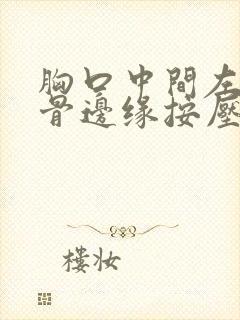 胸口中間左
骨邊缘按壓
樓妆